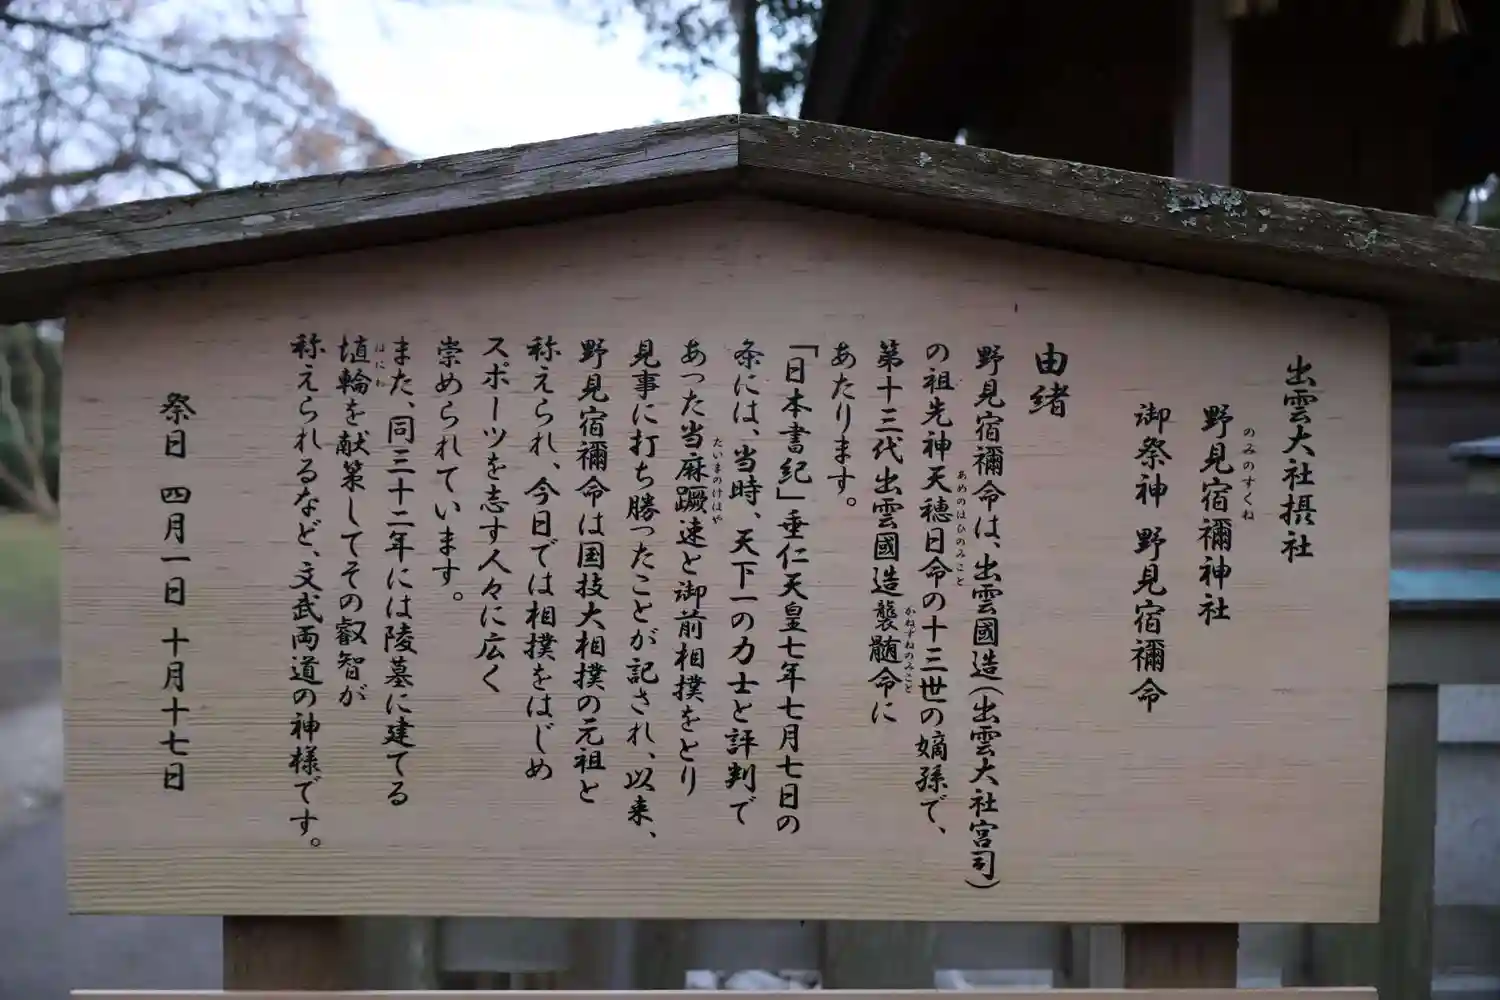 出雲大社摂社
野見宿禰神社
のみのすくね
御祭神 野見宿禰命
由緒
野見宿禰命は、出雲國造(出雲大社宮司)
の祖先神天穂日命の十三世の嫡孫で、
あめのほひのみこと
第十三代出雲國造襲髄命に
かねすねのみこと
あたります。
「日本書紀」垂仁天皇七年七月七日の
条には、当時、天下一の力士と評判で
あった当麻蹶速と御前相撲をとり
たいまのけはや
見事に打ち勝ったことが記され、以来、
野見宿禰命は国技大相撲の元祖と
称えられ、今日では相撲をはじめ
スポーツを志す人々に広く
崇められています。
また、同三十二年には陵墓に建てる
埴輪を献策してその叡智が
はにわ
称えられるなど、文武両道の神様です。
祭日 四月一日 十月十七日